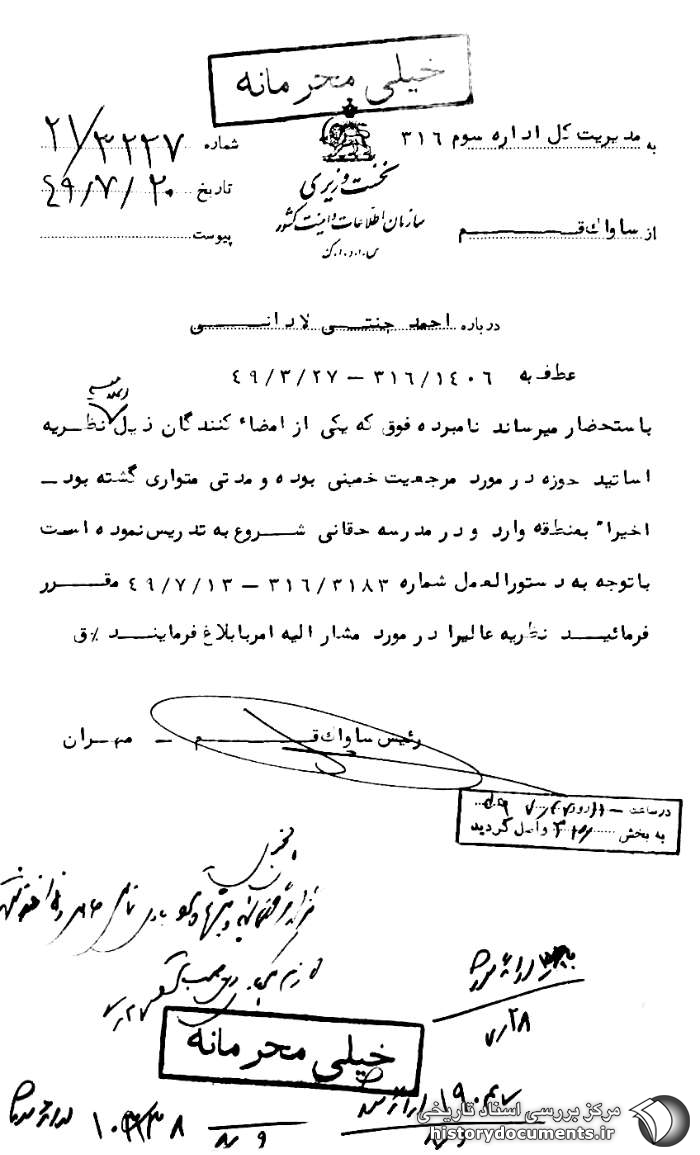 خیلی محرمانه
به مدیریت کل اداره سوم ۳۱۶
شماره ۲۱/۳۲۲۷
نخست وزیری
تاریخ ۴۹/۷/۲۰
سازمان اطلاعات و امنیت کشور
از ساواک قم
پیوست
س.ا.و.ا.ک
درباره احمد جنتی لادانی
عطف به ۳۱۶/۱۴۰۶ – ۴۹/۳/۲۷
باستحضار میرساند نامبرده فوق که یکی از امضاء کنندگان ذیل نظریه
اساتید حوزه در مورد مرجعیت خمینی بوده و مدتی متواری گشته بود –
اخیراً بمنطقه وارد و در مدرسه حقانی شروع به تدریس نموده است
باتوجه به دستورالعمل شماره ۳۱۶/۳۱۸۳ – ۴۹/۷/۱۳ مقرر
فرمائید نظریه عالیرا در مورد مشار الیه امربابلاغ فرمایند ٪ق
رئیس ساواک قم – مهران
در ساعت ۱۱ روز
به بخش ۳۱۶ واصل گردید
۷/۲۷
۷/۲۸
خیلی محرمانه
مرکز بررسی اسناد تاریخی
historydocuments.ir